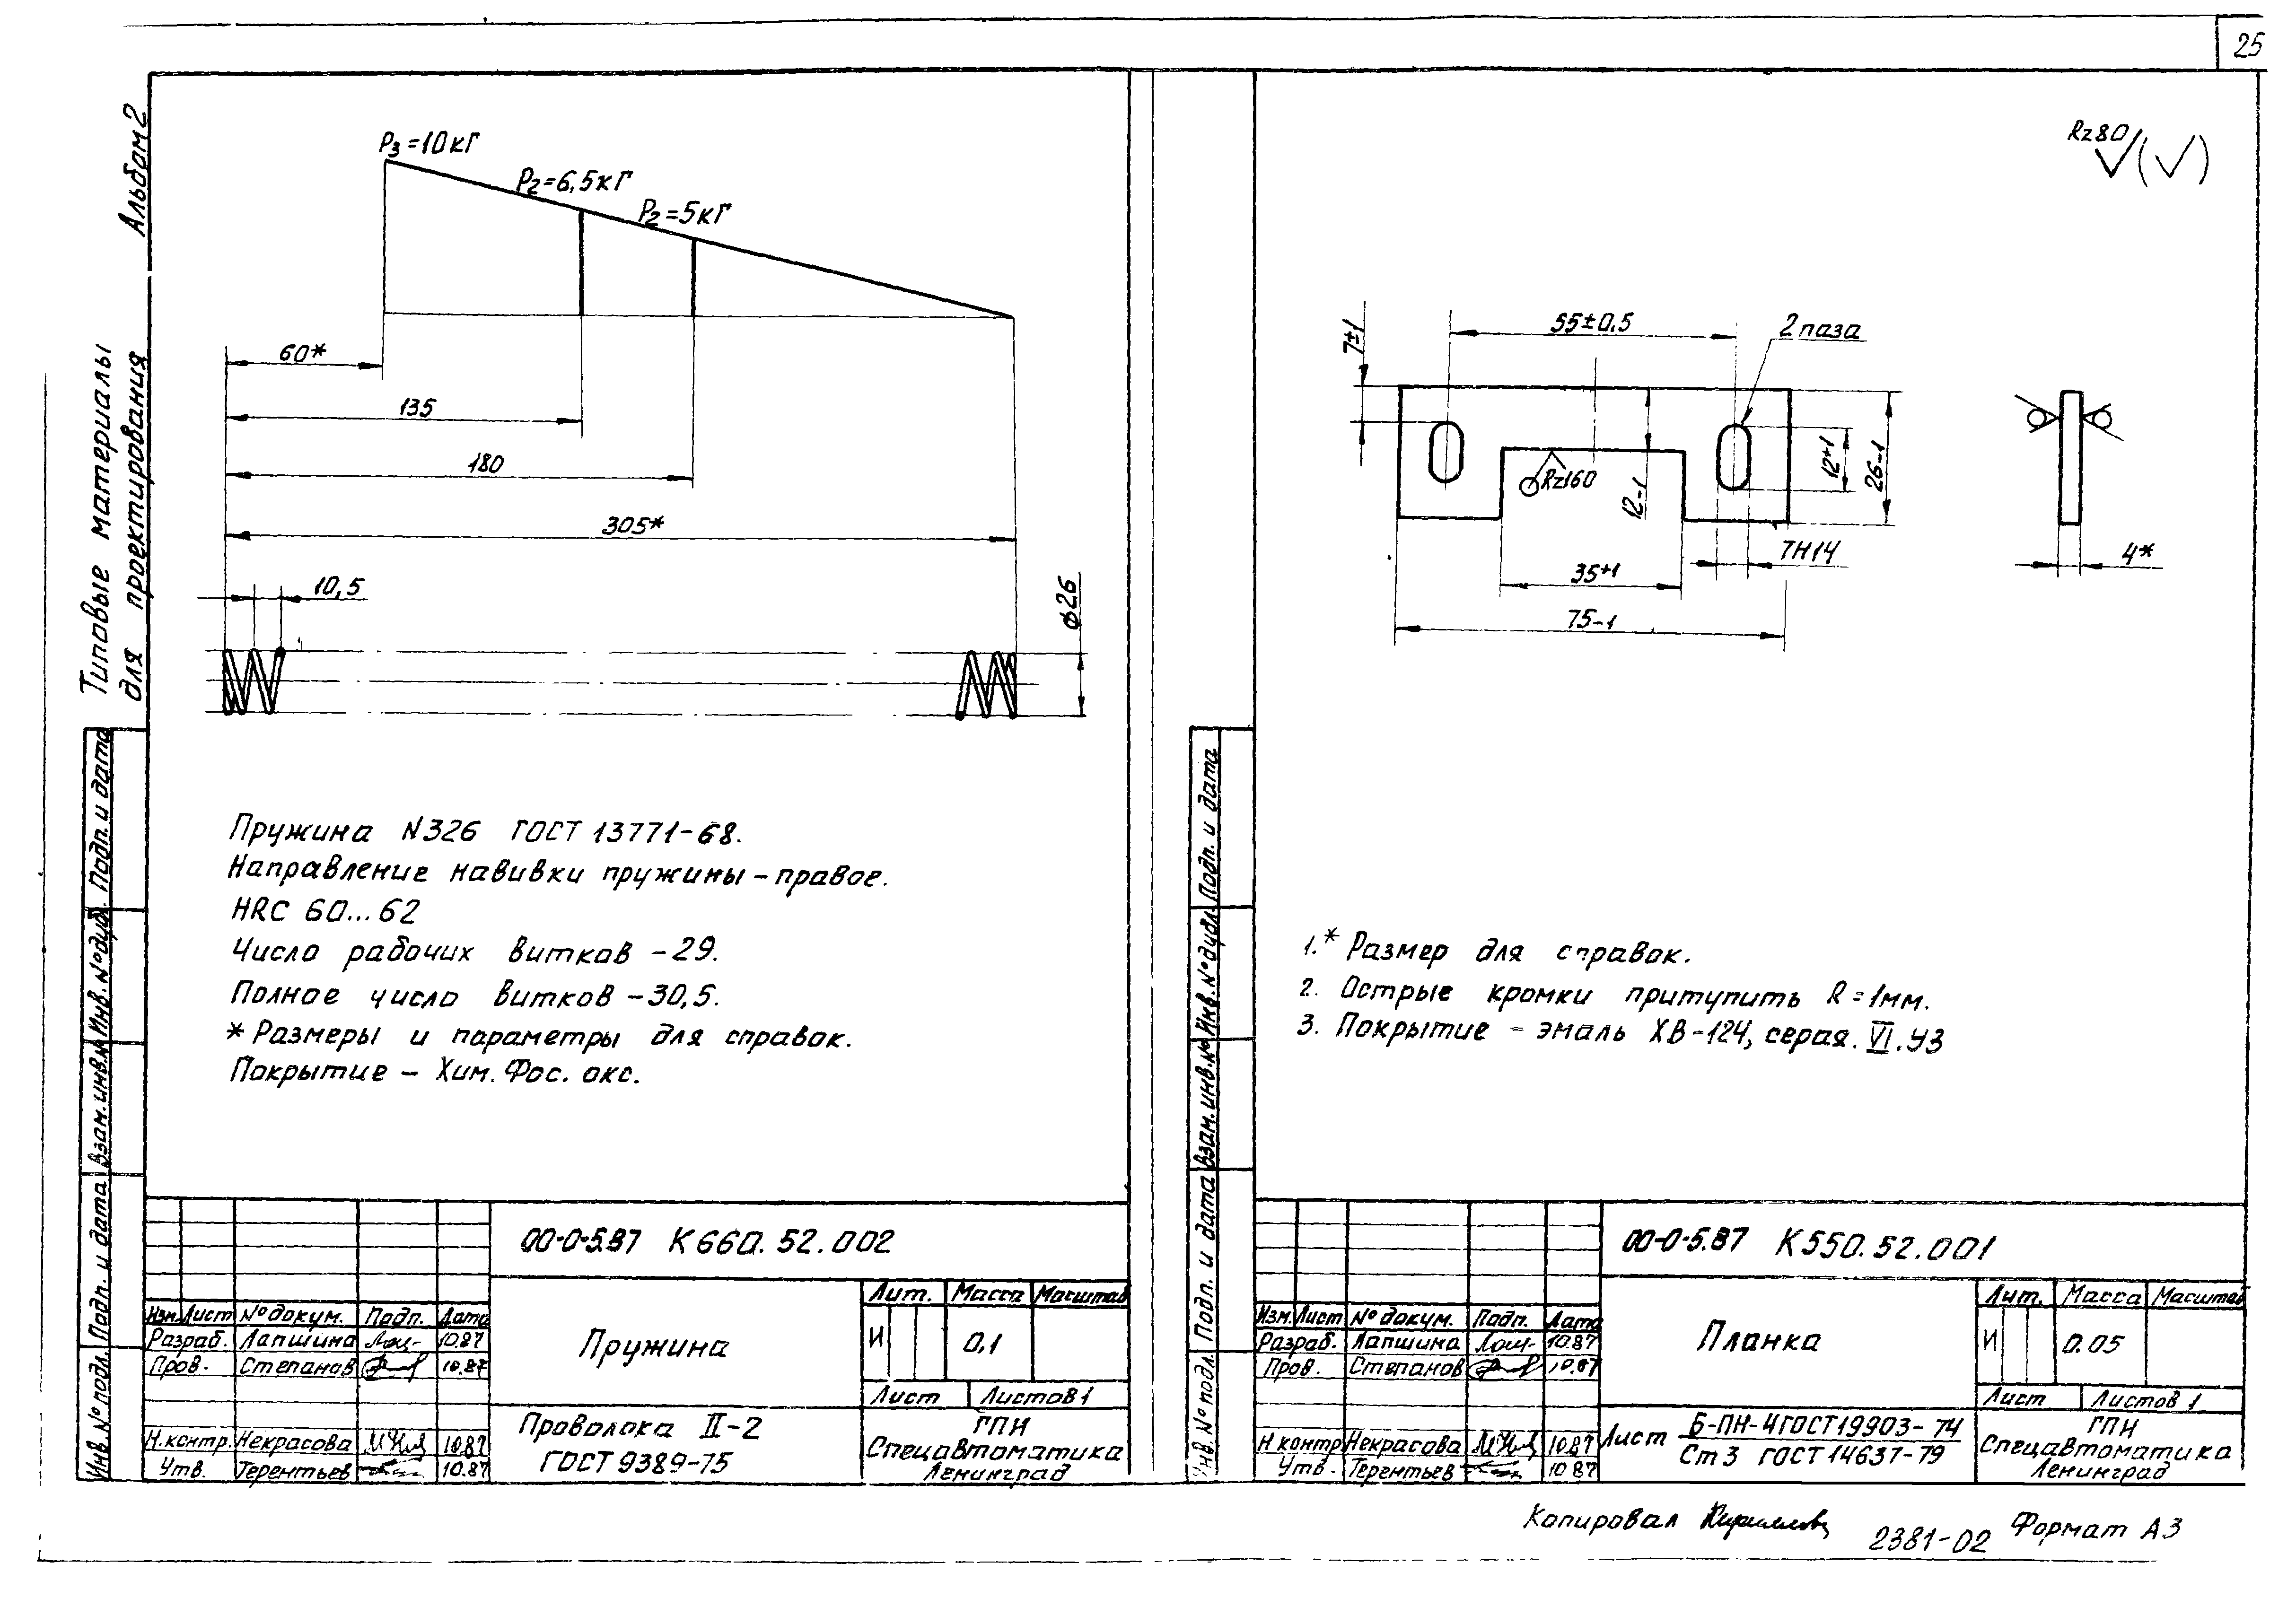 25
Альбом 2
Типовые материалы
для проектирования
P3=10кГ
P2=6,5кГ
P2=5кГ
60*
135
180
305*
10,5
ϕ26
Пружина N326 ГОСТ 13771-68.
Направление навивки пружины-правое.
HRC 60...62
Число рабочих витков -29.
Полное число витков -30,5.
* Размеры и параметры для справок.
Покрытие - Хим. Фос. окс.
Подп. и дата
Инв.№дубл.
Взам.инв.№
Подп. и дата
Инв.№подл.
00-0-5.87 К660.52.002
Изм. Лист №докум. Подп. Дата
Разраб. Лапшина 10.87
Пров. Степанов 10.87
Н.контр. Некрасова 10.87
Утв. Терентьев 10.87
Пружина
Лит. Масса Масштаб
И 0,1
Лист Листов 1
Проволока II-2
ГОСТ 9389-75
ГПИ
Спецавтоматика
Ленинград
Rz80
55±0,5
2 паза
7±1
Rz160
12-1
12+1
26-1
7H14
35+1
75-1
4*
1.* Размер для справок.
2. Острые кромки притупить R=1мм.
3. Покрытие - эмаль ХВ-124, серая. VI. У3
Подп. и дата
Инв.№дубл.
Взам.инв.№
Подп. и дата
Инв.№подл.
00-0-5.87 К550.52.001
Изм. Лист №докум. Подп. Дата
Разраб. Лапшина 10.87
Пров. Степанов 10.87
Н контр Некрасова 10.87
Утв. Терентьев 10 87
Планка
Лит. Масса Масштаб
И 0.05
Лист Листов 1
Лист Б-ПН-4 ГОСТ 19903-74
Ст3 ГОСТ 14637-79
ГПИ
Спецавтоматика
Ленинград
Копировал
2381-02
Формат А3